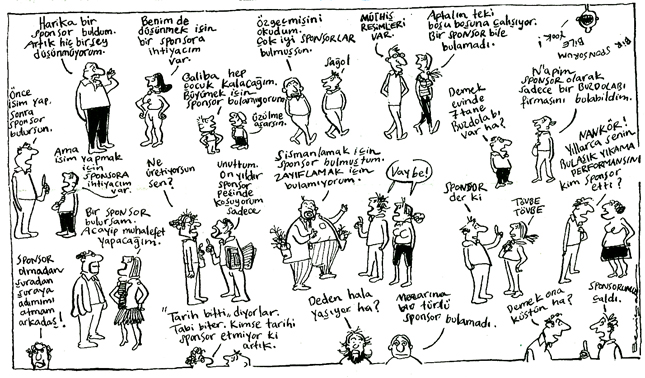 Harika bir
sponsor buldum.
Artık hiç bir şey
düşünmüyorum.
Benim de
düşünmek için
bir sponsora
ihtiyacım
var.
Özgeçmişini
okudum.
Çok iyi SPONSORLAR
bulmuşsun.
Sağol
MÜTHİŞ
RESİMLERİ
VAR.
Aptalın teki
boşu boşuna çalışıyor.
Bir sponsor bile
bulamadı.
BİR SPONSORUM
BİLE
YOK!
Önce
işim yap.
Sonra
sponsor
bulursun.
Galiba hep
çocuk kalacağım.
Büyümek için
sponsor bulamıyorum
üzülme
açarsın.
Demek
evinde
7 tane
Buzdolabı
var ha?
N'apim
SPONSOR olarak
sadece bir BUZDOLABI
firmasını bulabildim.
Ama
işim yapmak
için
SPONSORA
ihtiyacım
var.
Ne
üretiyorsun
sen?
unuttum.
On yıldır
sponsor
peşinde
koşuyorum
sadece
Şişmanlamak için
sponsor bulmuştum.
ZAYIFLAMAK için
bulamıyorum.
Vay be!
SPONSOR
der ki
TÖVBE
TÖVBE
NANKÖR!
Yıllarca senin
BULAŞIK YIKAMA
PERFORMANSINI
kim sponsor
etti?
Bir SPONSOR
bulursam.
Acayip muhalefet
yapacağım.
SPONSOR
olmadan
şuradan
şuraya
adımımı
atmam
arkadaş!
"Tarih bitti, diyorlar.
Tabi biter. Kimse tarihi
sponsor etmiyor ki
artık.
Deden hala
yaşıyor ha?
Mezarına
bir türlü
sponsor
bulamadı.
Demek ona
küstün ha?
SPONSORUMU
çaldı.